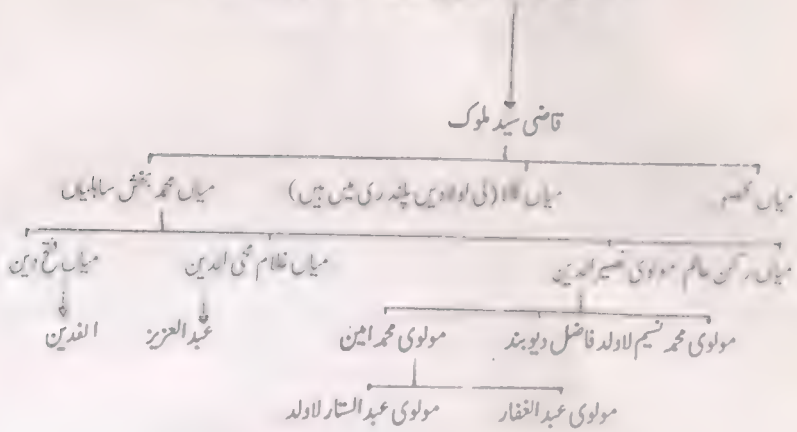 قاضی سید ملوک
میاں میاں (کی اولادیں پلندری میں ہیں) میاں محمد بخش ساہلیاں
میاں رکن عالم مولوی نصیر الدین میاں غلام محی الدین میاں فتح دین
مولوی محمد نسیم لاولد فاضل دیوبند مولوی محمد امین عبدالعزیز الفدین
مولوی عبدالغفار مولوی عبدالستار لاولد